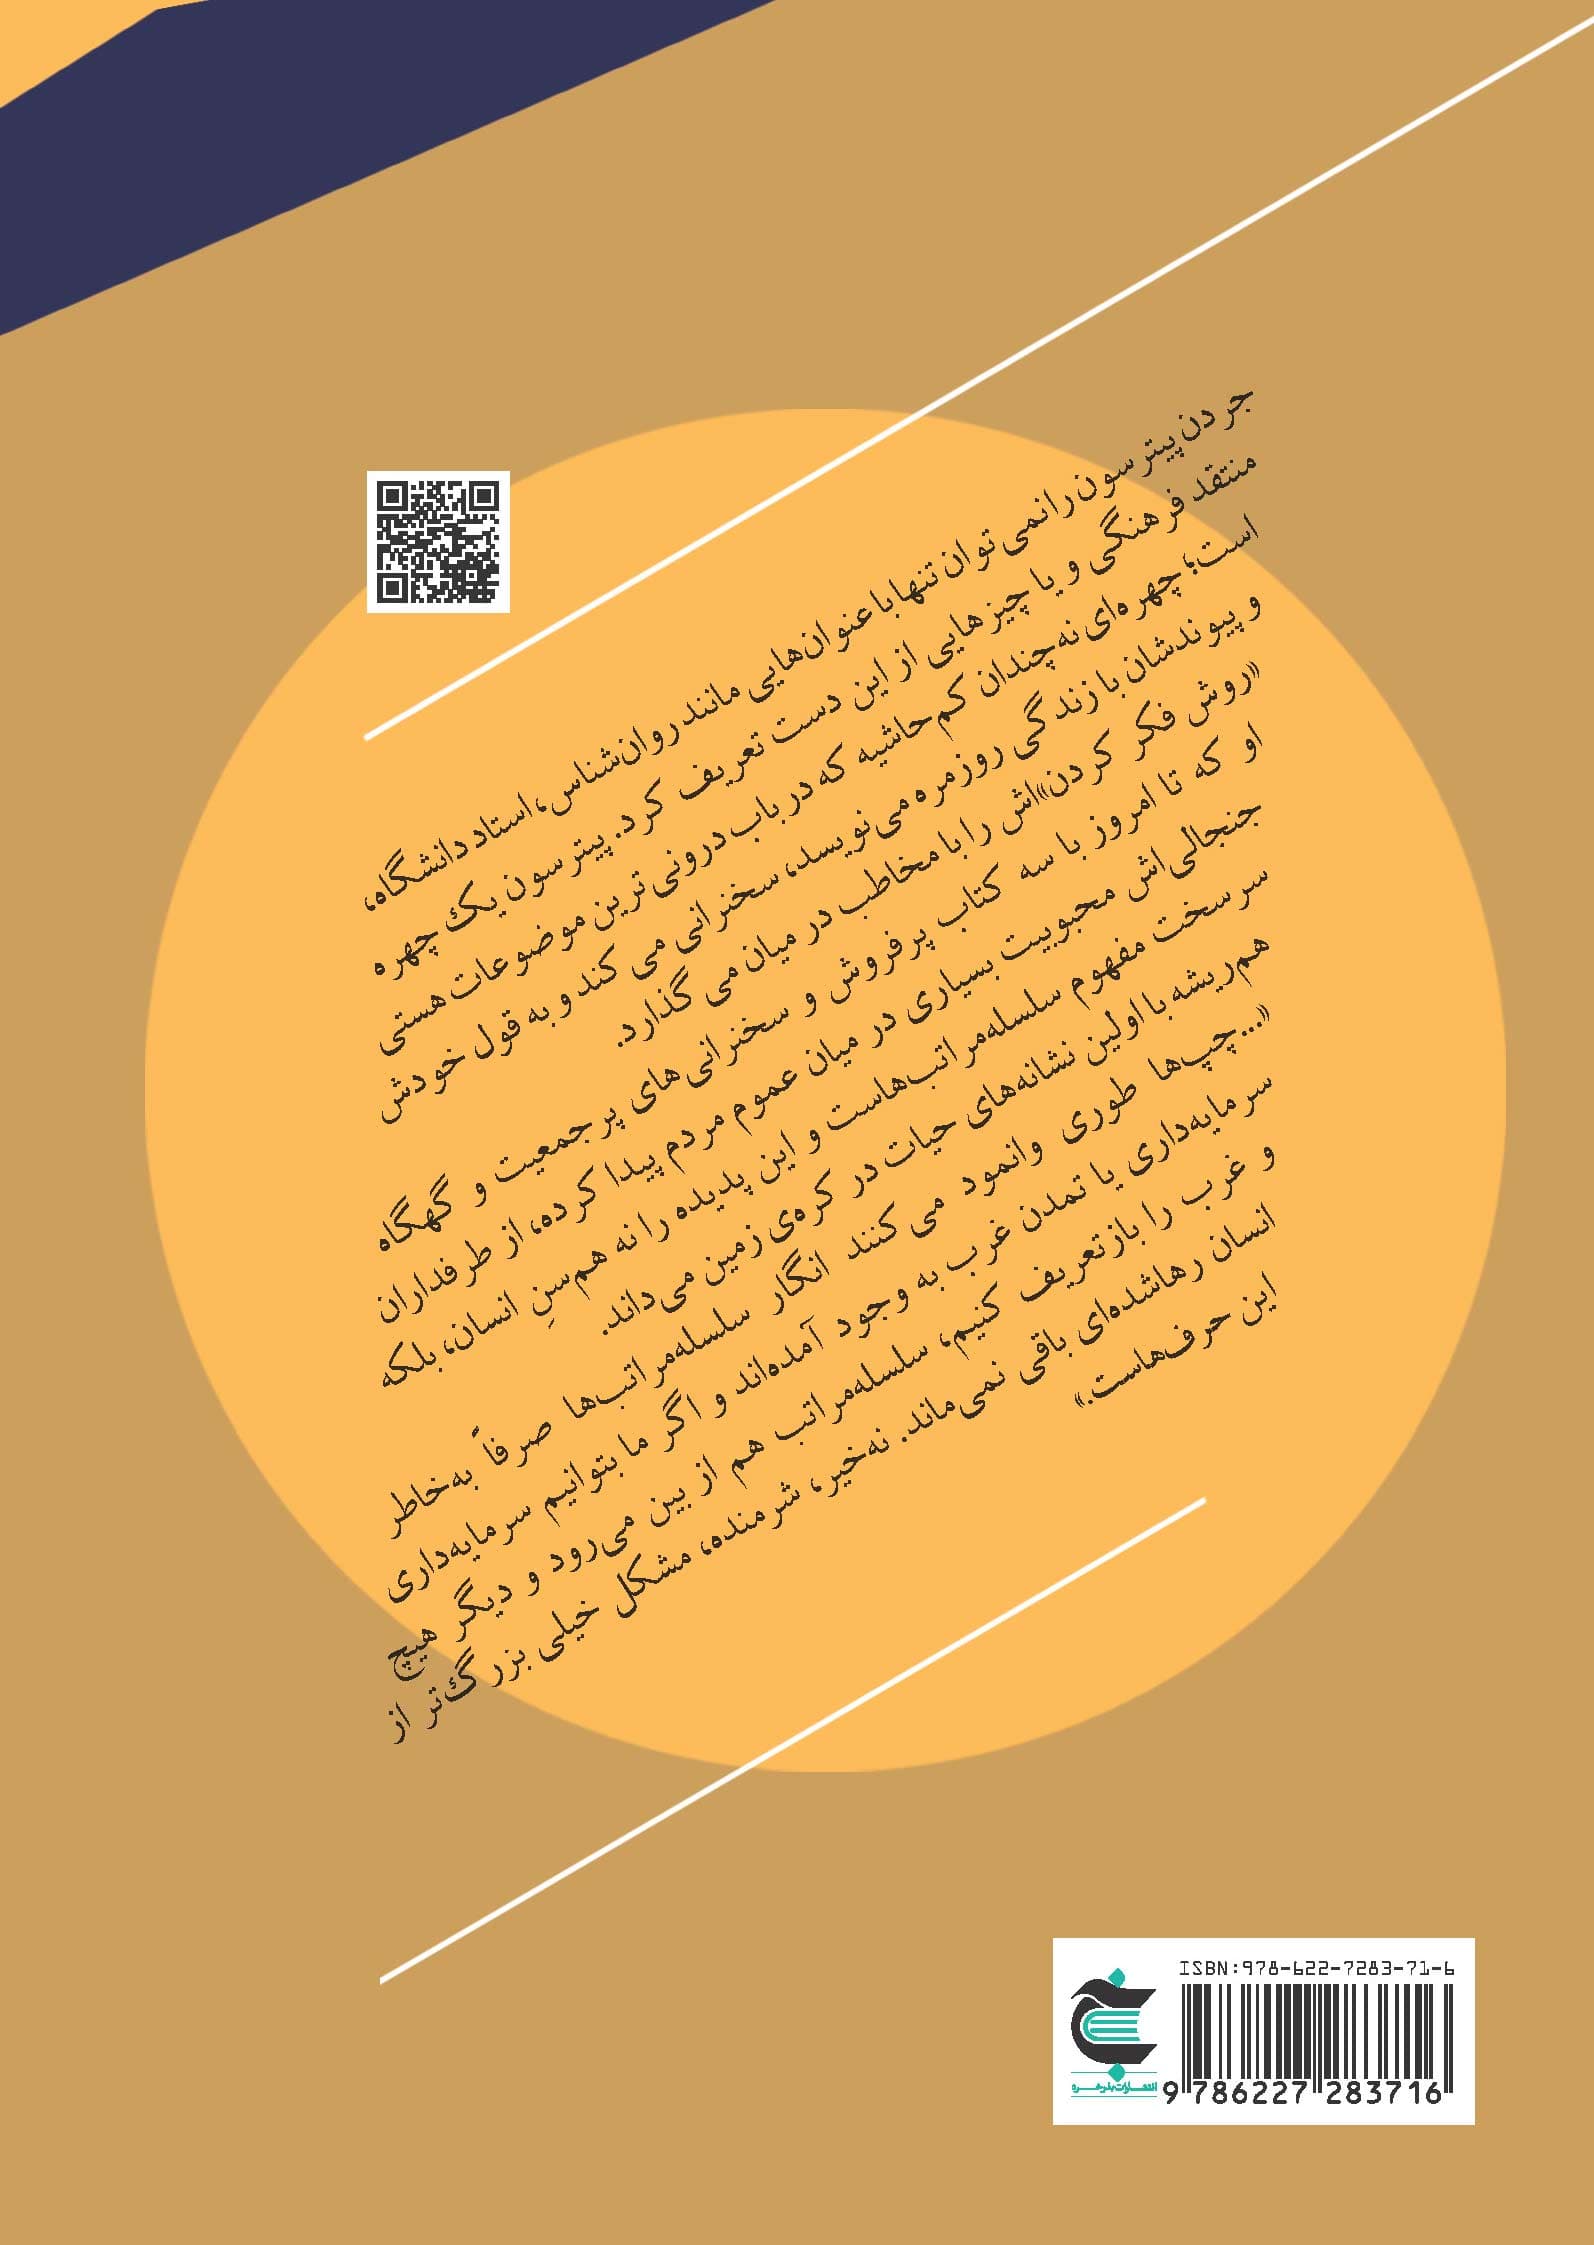 جردن پیترسون را نمی‌توان تنها با عنوان‌هایی مانند روان‌شناس، استاد دانشگاه،
منتقد فرهنگی و یا چیزهایی از این دست تعریف کرد. پیترسون یک چهره
است؛ چهره‌ای نه‌چندان کم‌حاشیه که در باب درونی‌ترین موضوعات هستی
و پیوندشان با زندگی روزمره می‌نویسد، سخنرانی می‌کند و به قول خودش
«روش فکر کردن»اش را با مخاطب در میان می‌گذارد.
او که تا امروز با سه کتاب پرفروش و سخنرانی‌های پرجمعیت و گهگاه
جنجالی‌اش محبوبیت بسیاری در میان عموم مردم پیدا کرده، از طرفداران
سرسخت مفهوم سلسله‌مراتب‌هاست و این پدیده را نه هم‌سنِ انسان، بلکه
هم‌ریشه با اولین نشانه‌های حیات در کره‌ی زمین می‌داند.
«...چپ‌ها طوری وانمود می‌کنند انگار سلسله‌مراتب‌ها صرفاً به‌خاطر
سرمایه‌داری یا تمدن غرب به وجود آمده‌اند و اگر ما بتوانیم سرمایه‌داری
و غرب را بازتعریف کنیم، سلسله‌مراتب هم از بین می‌رود و دیگر هیچ
انسان رهاشده‌ای باقی نمی‌ماند. نه‌خیر، شرمنده، مشکل خیلی بزرگ‌تر از
این حرف‌هاست.»
ISBN:978-622-7283-71-6
9 786227 283716